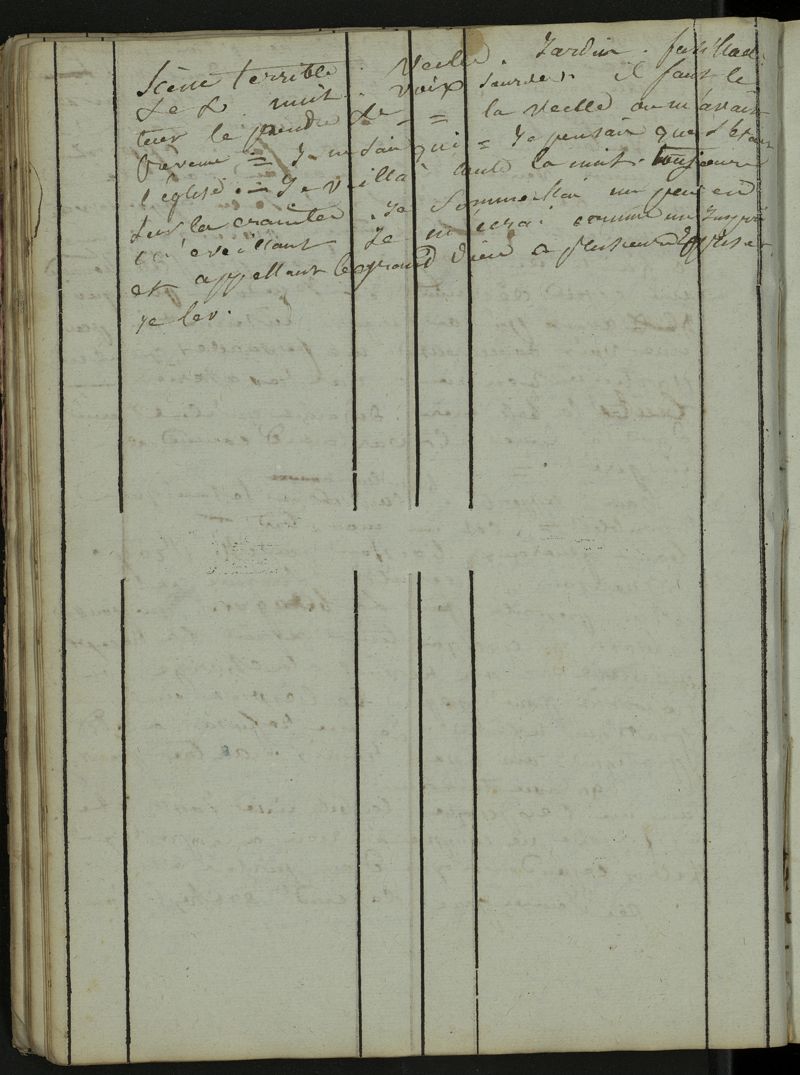 Scène terrible. Veille. Jardin.
nuit. voix sourdes. il faut le
tuer le pendre &c = la veille on m'avait
prévenu = Je ne sai qui = Je pensair que
l'église. = Je veilla toute la nuit. toujours
sur la crainte. Je sommeillai un peu en
m'éveillant Je m'écriai comme un
et appellant le grand dieu a plusieurs reprises
Je lev.